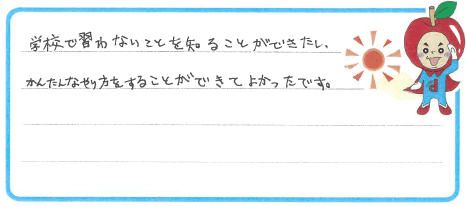 学校で習わないことを知ることができたし、
かんたんなやり方をすることができてよかったです。
d